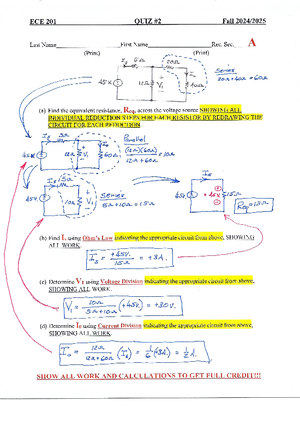 ECE 201 QUIZ #2 Fall 2024/2025
Last Name First Name Rec. Sec. A
(Print) (Print)
45V
Series
(a) Find the equivalent resistance, Req, across the voltage source SHOWING ALL
INDIVIDUAL REDUCTION STEPS FOR EACH RESISTOR BY REDRAWING THE
CIRCUIT FOR EACH REDUCTION.
Parallel
(12Ω)(60Ω)
12Ω+60Ω = 10Ω
45V
Series
5Ω+10Ω=15Ω
Req = 15Ω
(b) Find Is using Ohm's Law indicating the appropriate circuit from above, SHOWING
ALL WORK.
Is = +45V / 15Ω = +3A.
(c) Determine V1 using Voltage Division indicating the appropriate circuit from above,
SHOWING ALL WORK.
V1 = 10Ω / 5Ω+10Ω (+45V) = +30V.
(d) Determine Io using Current Division indicating the appropriate circuit from above,
SHOWING ALL WORK.
Io = 12Ω / 12Ω+60Ω (Is) = 1/6 (+3A) = 1/2 A.
SHOW ALL WORK AND CALCULATIONS TO GET FULL CREDIT!!!